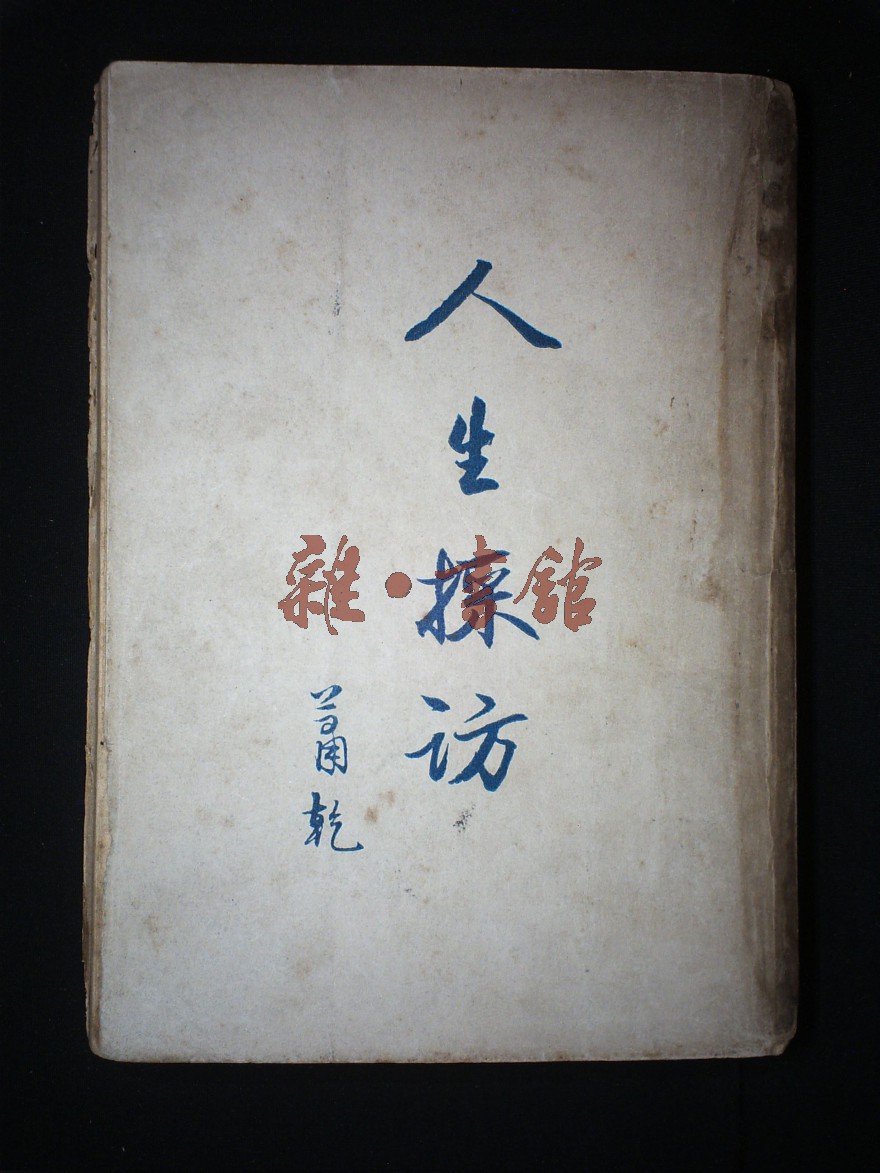 人生採訪
蕭乾
雜•書舘